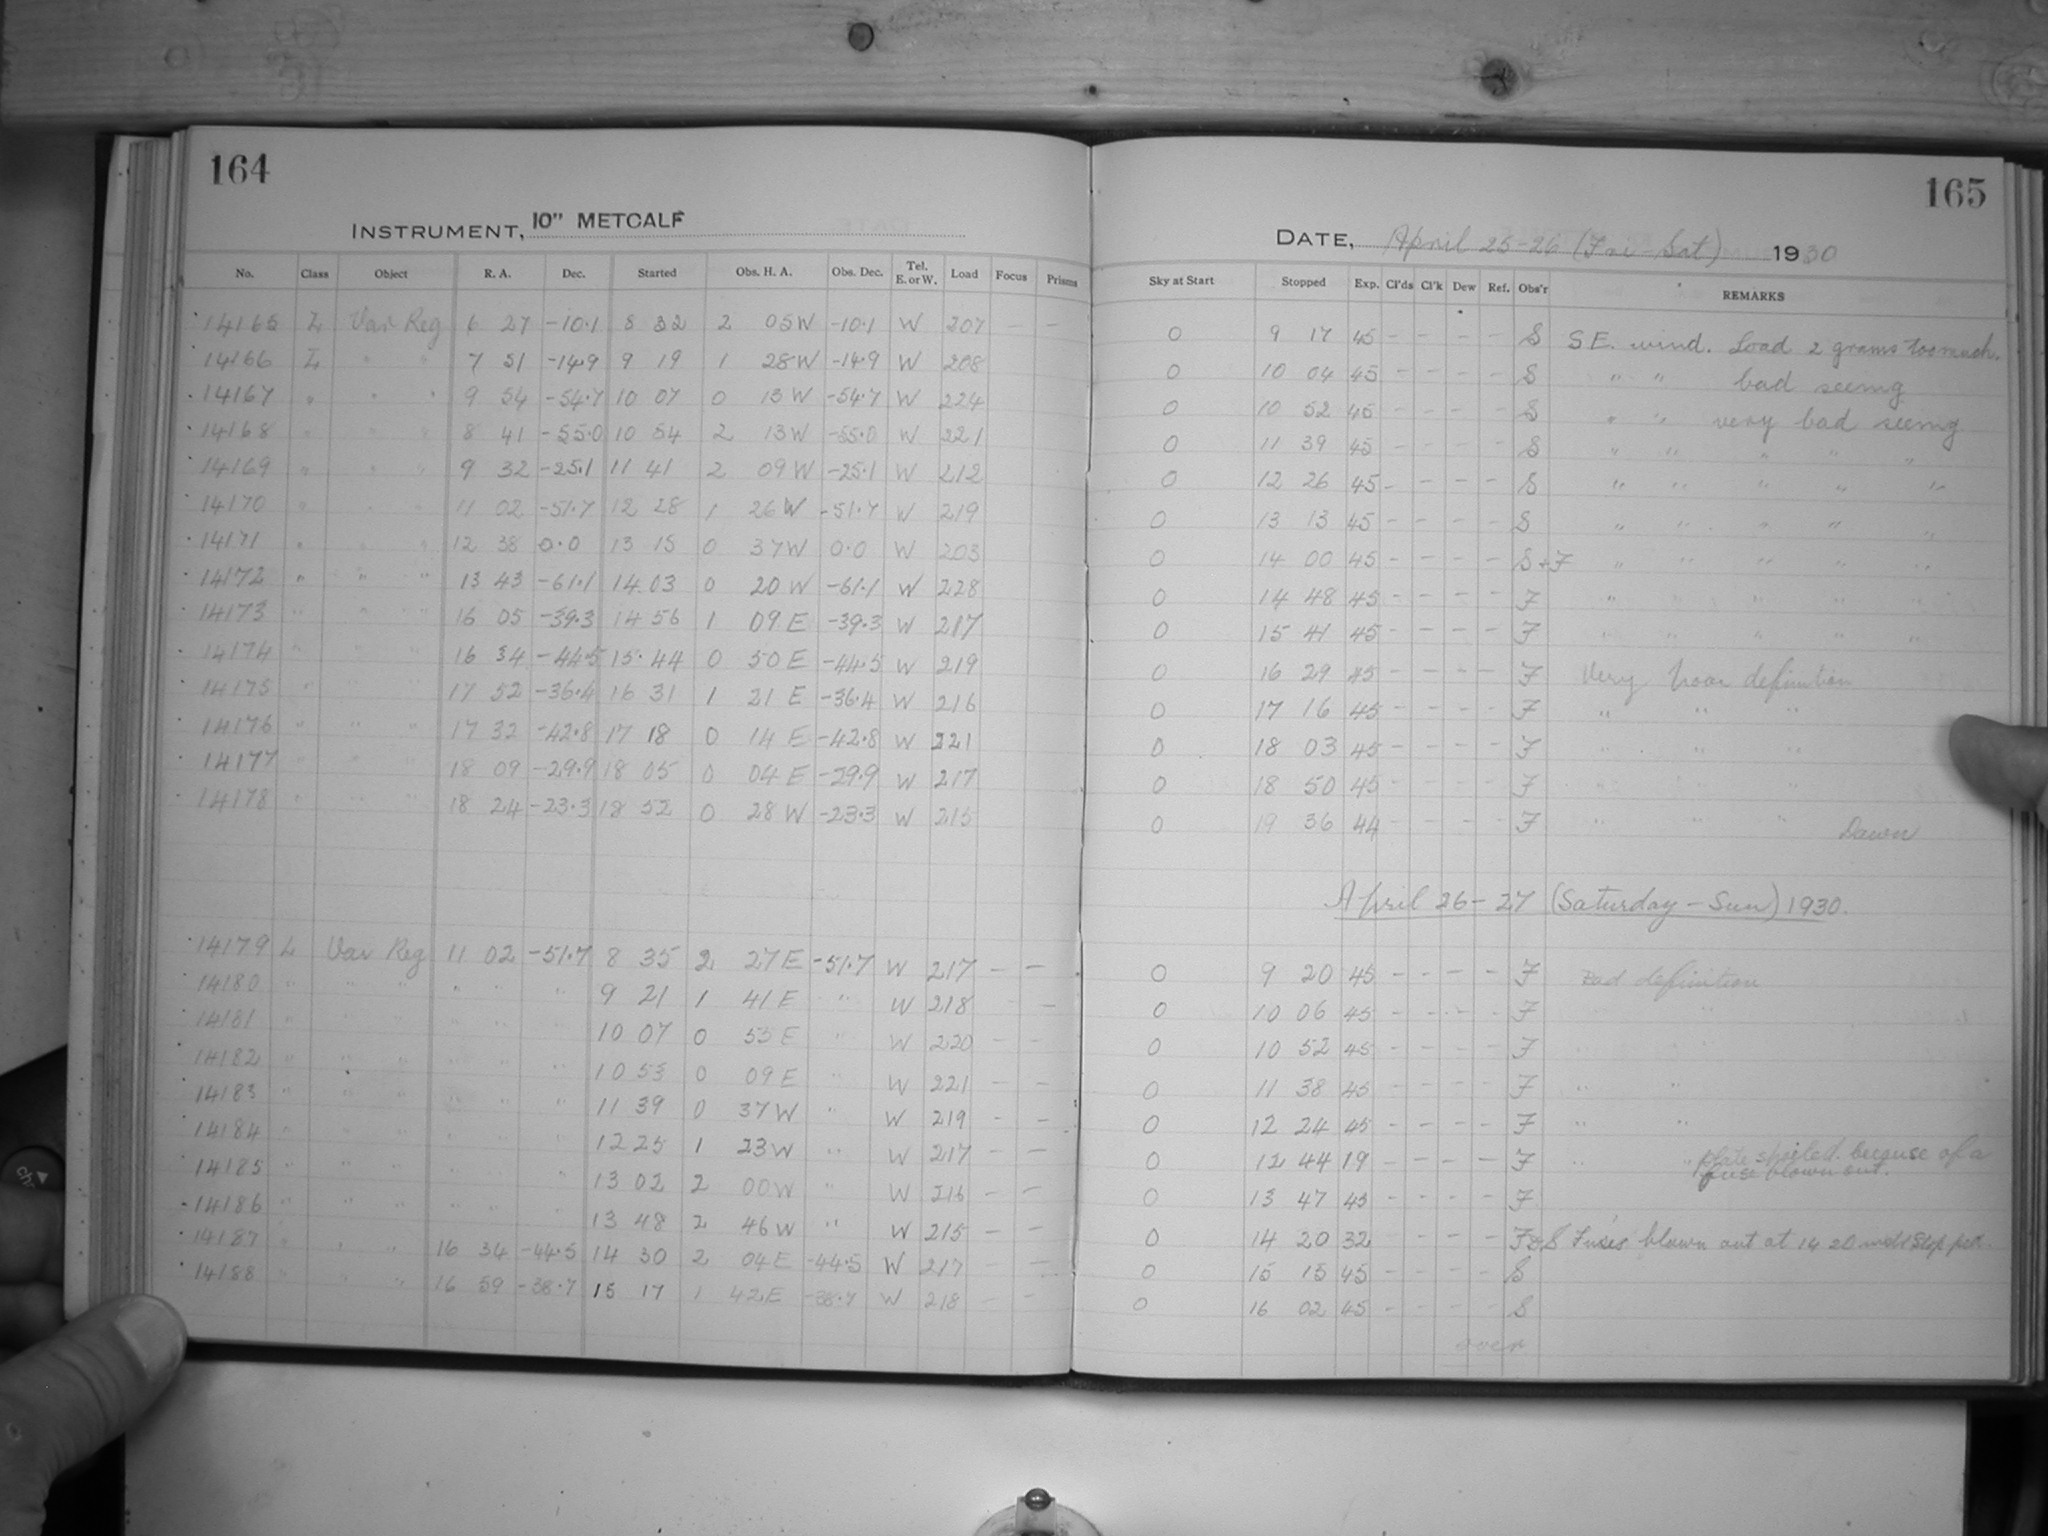 164
INSTRUMENT, 10" METCALF
No. Class Object R. A. Dec. Started Obs. H. A. Obs. Dec. Tel. E. or W. Load Focus Prisms
14165 L Var Reg 6 27 -10.1 8 32 2 05 W -10.1 W 207 - -
14166 L " " 7 51 -14.9 9 19 1 28 W -14.9 W 208
14167 " " " 9 54 -54.7 10 07 0 13 W -54.7 W 224
14168 " " " 8 41 -55.0 10 54 2 13 W -55.0 W 221
14169 " " " 9 32 -25.1 11 41 2 09 W -25.1 W 212
14170 " " " 11 02 -51.7 12 28 1 26 W -51.7 W 219
14171 " " " 12 38 0.0 13 15 0 37 W 0.0 W 203
14172 " " " 13 43 -61.1 14 03 0 20 W -61.1 W 228
14173 " " " 16 05 -39.3 14 56 1 09 E -39.3 W 217
14174 " " " 16 34 -44.5 15 44 0 50 E -44.5 W 219
14175 " " " 17 52 -36.4 16 31 1 21 E -36.4 W 216
14176 " " " 17 32 -42.8 17 18 0 14 E -42.8 W 221
14177 " " " 18 09 -29.9 18 05 0 04 E -29.9 W 217
14178 " " " 18 24 -23.3 18 52 0 28 W -23.3 W 215
14179 L Var Reg 11 02 -51.7 8 35 2 27 E -51.7 W 217 - -
14180 " " " " " " 9 21 1 41 E " W 218 - -
14181 " " " " " " 10 07 0 55 E " W 220 - -
14182 " " " " " " 10 53 0 09 E " W 221 - -
14183 " " " " " " 11 39 0 37 W " W 219 - -
14184 " " " " " " 12 25 1 23 W " W 217 - -
14185 " " " " " " 13 02 2 00 W " W 216 - -
14186 " " " " " " 13 48 2 46 W " W 215 - -
14187 " " " 16 34 -44.5 14 30 2 04 E -44.5 W 217 - -
14188 " " " 16 59 -38.7 15 17 1 42 E -38.7 W 218 - -
165
DATE, April 25-26 (Fri-Sat) 1930
Sky at Start Stopped Exp. Cl'ds Cl'k Dew Ref. Obs'r REMARKS
0 9 17 45 - - - - S S E. wind. Load 2 grams too much.
0 10 04 45 - - - - S " " bad seeing
0 10 52 45 - - - - S " " very bad seeing
0 11 39 45 - - - - S " " " " "
0 12 26 45 - - - - S " " " " "
0 13 13 45 - - - - S " " " " "
0 14 00 45 - - - - S+F " " " " "
0 14 48 45 - - - - F " " " " "
0 15 41 45 - - - - F " " " " "
0 16 29 45 - - - - F Very poor definition
0 17 16 45 - - - - F " " "
0 18 03 45 - - - - F " " "
0 18 50 45 - - - - F " " "
0 19 36 44 - - - - F " " " Dawn
April 26-27 (Saturday-Sun) 1930.
0 9 20 45 - - - - F Bad definition
0 10 06 45 - - - - F " "
0 10 52 45 - - - - F " "
0 11 38 45 - - - - F " "
0 12 24 45 - - - - F " "
0 12 44 19 - - - - F " " plate spoiled because of a
fuse blown out.
0 13 47 45 - - - - F
0 14 20 32 - - - - F&S Fuses blown out at 14 20
0 15 15 45 - - - - S
0 16 02 45 - - - - S
over